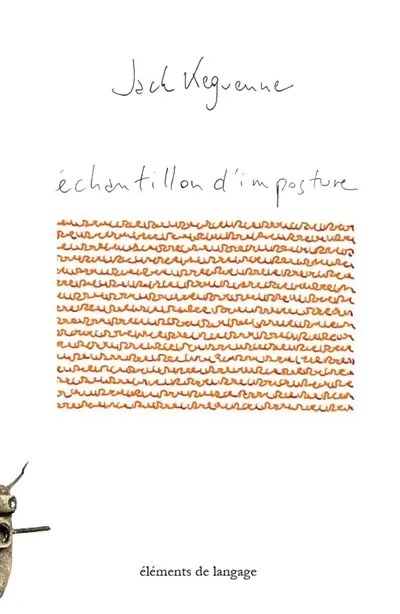 Jack Keguenne
échantillon d'imposture
éléments de langage